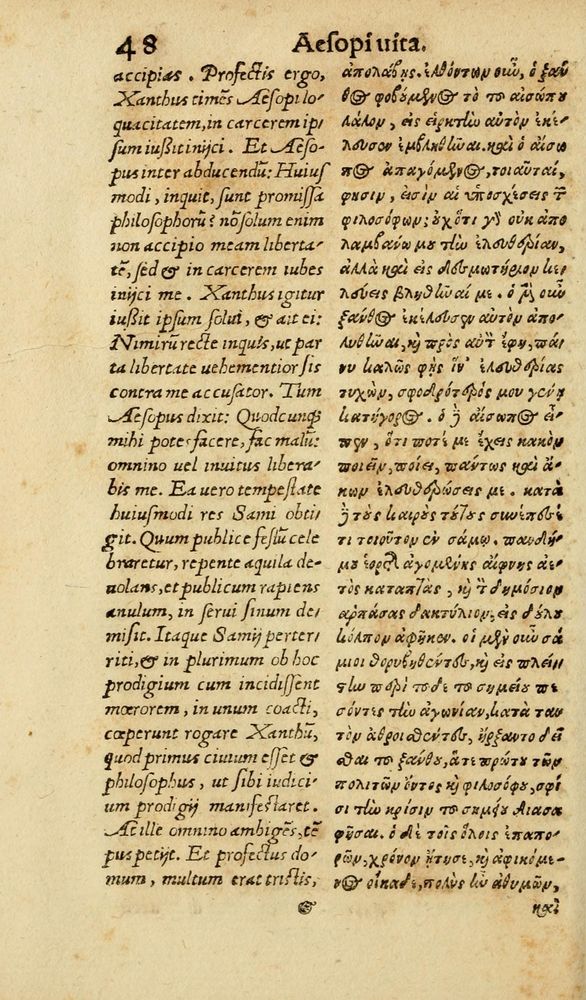 48 Aesopi uita.
accipias. Profectis ergo,
Xanthus timēs Aesopi lo-
quacitatem, in carcerem ip-
sum iußit inijci. Et Aeso-
pus inter abducendū: Huius
modi, inquit, sunt promissa
philosophorū? nō solum enim
non accipio meam liberta-
tē, sed & in carcerem iubes
inijci me. Xanthus igitur
iußit ipsum solui, & ait ei:
Nimirū recte inquis, ut par
ta libertate uehementior sis
contra me accusator. Tum
Aesopus dixit: Quodcunqꝫ
mihi potes facere, fac malū:
omnino uel inuitus libera-
bis me. Ea uero tempestate
huiusmodi res Sami obti-
git. Quum publice festū cele
braretur, repente aquila de-
uolans, et publicum rapiens
anulum, in serui sinum de-
misit. Itaque Samij perter-
riti, & in plurimum ob hoc
prodigium cum incidissent
mœrorem, in unum coacti,
cœperunt rogare Xanthū,
quod primus ciuium esset &
philosophus, ut sibi iudici-
um prodigij manifestaret.
Ac ille omnino ambigēs, tē
pus petijt. Et profectus do-
mum, multum erat tristis,
&
ἀπολάβῃς. ἐλθόντων οὖν, ὁ ξαν
θος φοβούμενος τὸ τοῦ αἰσώπου
λάλον, εἰς εἱρκτὴν αὐτὸν ἐκέ-
λευσεν ἐμβληθῆναι. καὶ ὁ αἴσω
πος ἀπαγόμενος, τοιαῦται,
φησιν, εἰσὶν αἱ ὑποσχέσεις τῶν
φιλοσόφων; οὐχ ὅτι γὰρ οὐκ ἀπο
λαμβάνω μου τὴν ἐλευθερίαν,
ἀλλὰ καὶ εἰς δεσμωτήριον κε-
λεύεις βληθῆναί με. ὁ μὲν οὖν
ξάνθος ἐκέλευσεν αὐτὸν ἀπο-
λυθῆναι, καὶ πρὸς αὐτὸν ἔφη, πά
νυ καλῶς φῂς ἵν' ἐλευθερίας
τυχὼν, σφοδρότερός μου γένῃ
κατήγορος. ὁ δὲ αἴσωπος εἶ-
πεν, ὅτι ποτέ με ἔχεις κακὸν
ποιεῖν, ποίει, πάντως καὶ ἄ-
κων ἐλευθερώσεις με. κατὰ
δὲ τοὺς καιροὺς τούτους συνέπεσέ
τι τοιοῦτον ἐν σάμῳ. πανδή-
μου ἑορτῆς ἀγομένης αἴφνης ἀε-
τὸς καταπτὰς, καὶ τὸν δημόσιον
ἁρπάσας δακτύλιον, εἰς δούλου
κόλπον ἀφῆκεν. οἱ μὲν οὖν σά
μιοι θορυβηθέντες, καὶ εἰς πλεί-
στην περὶ τοῦδε τοῦ σημείου πε-
σόντες τὴν ἀγωνίαν, κατὰ ταυ
τὸν ἀθροισθέντες, ἤρξαντο δεῖ
σθαι τοῦ ξάνθου, ἅτε πρώτου τῶν
πολιτῶν ὄντος καὶ φιλοσόφου, σφί
σι τὴν κρίσιν τοῦ σημείου διασα
φῆσαι. ὁ δὲ τοῖς ὅλοις ἐπαπο-
ρῶν, χρόνον ᾔτησε, καὶ ἀφικόμε-
νος οἴκαδε, πολὺς ἦν ἀθυμῶν,
καὶ